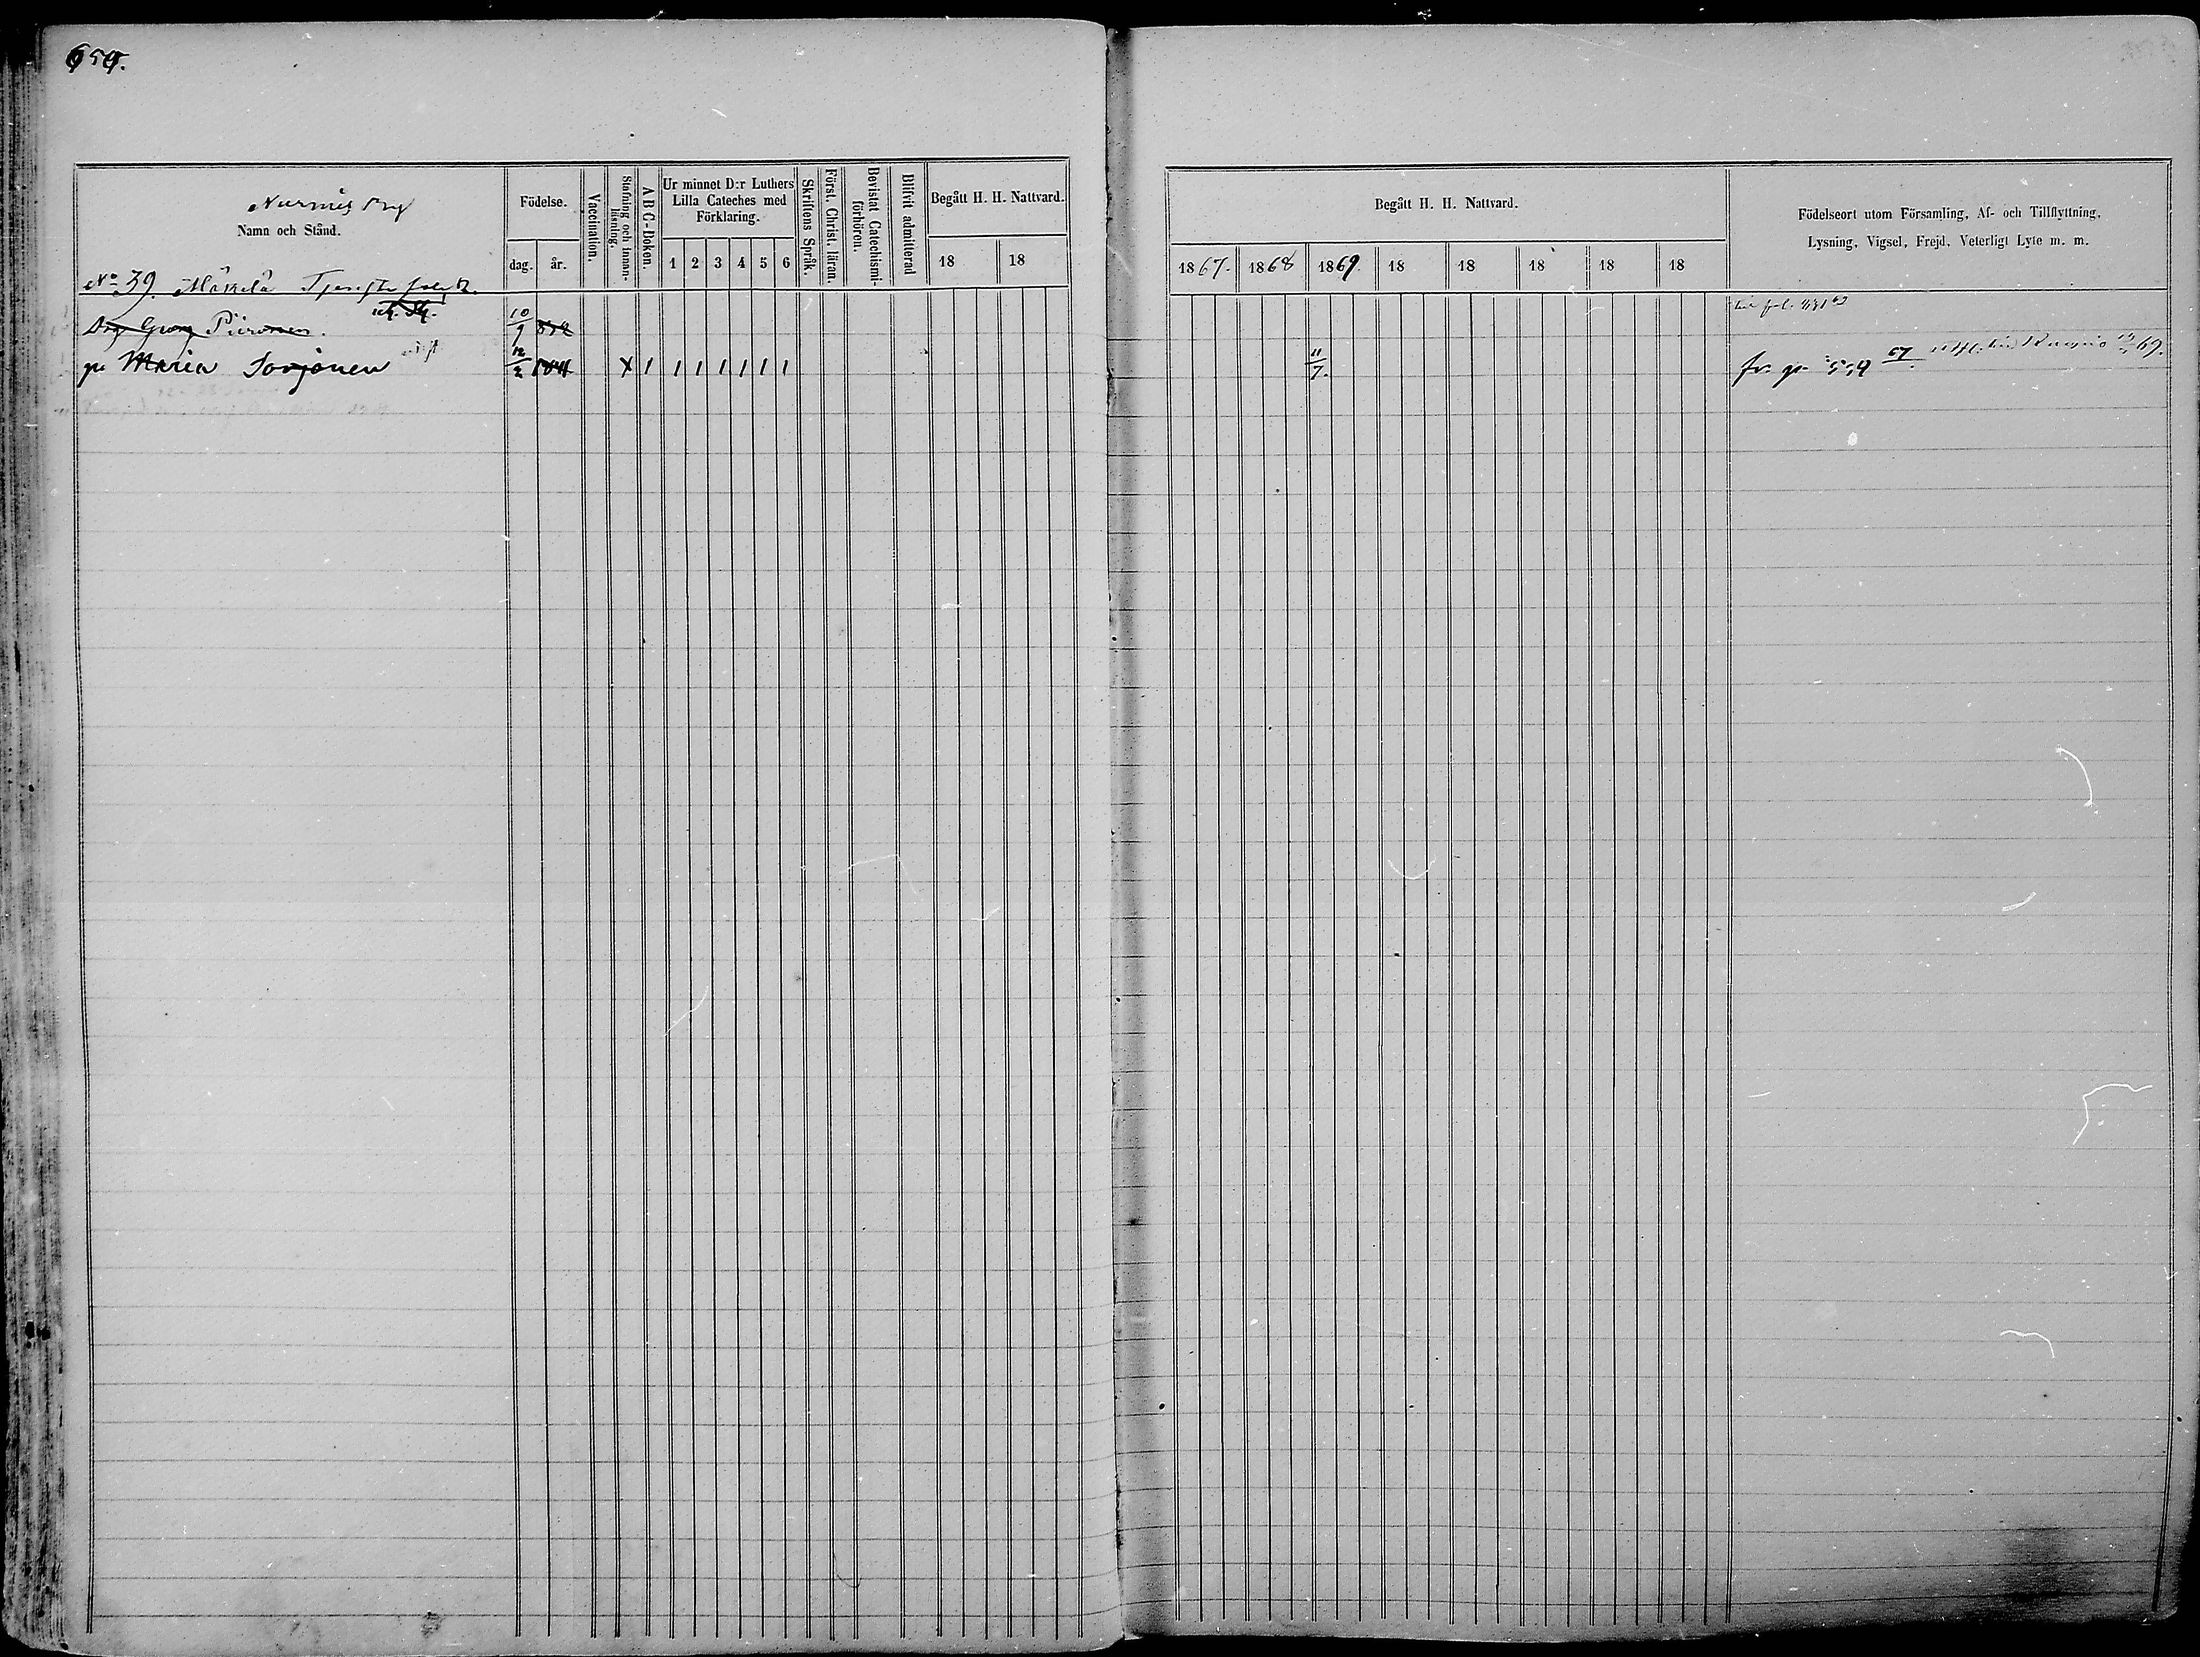 Nurmis by
Namn och Stånd.
Födelse.
dag. år.
Vaccination.
Stafning och innan-läsning.
A B C-Boken.
Ur minnet D:r Luthers
Lilla Cateches med
Förklaring.
1 2 3 4 5 6
Skriftens Språk.
Först. Christ. läran.
Bevistat Catechismi-förhören.
Blifvit admitterad
Begått H. H. Nattvard.
18 18
Begått H. H. Nattvard.
1867. 1868 1869. 18 18 18 18 18
Födelseort utom Församling, Af- och Tillflyttning,
Lysning, Vigsel, Frejd, Veterligt Lyte m. m.
No 39. Mäkelä Tjenste folk
Drg Georg Piironen 10/9
pi Maria Sorjonen 12/2 1841 X 1 1 1 1 1 1 1 11/7. fr. p. 67 69.